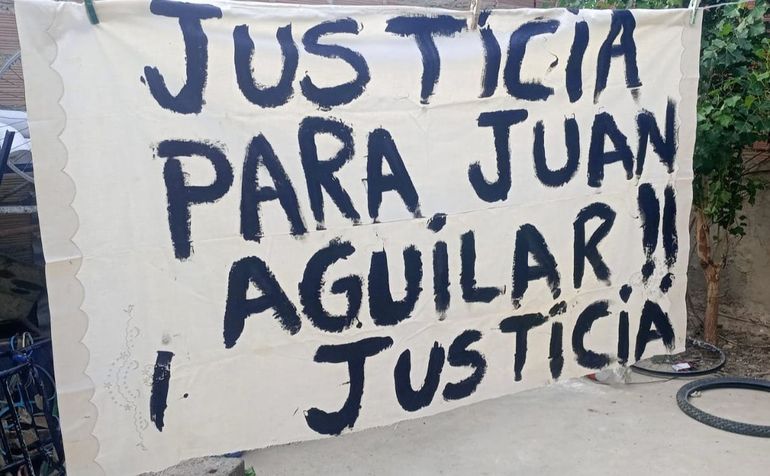 JUSTICIA
PARA JUAN
AGUILAR!!
¡ JUSTICIA